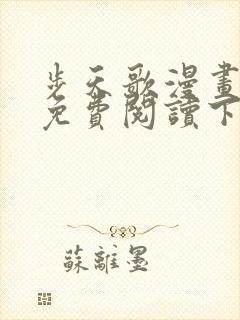 步天歌漫畫
免費閱讀下
蘇離墨